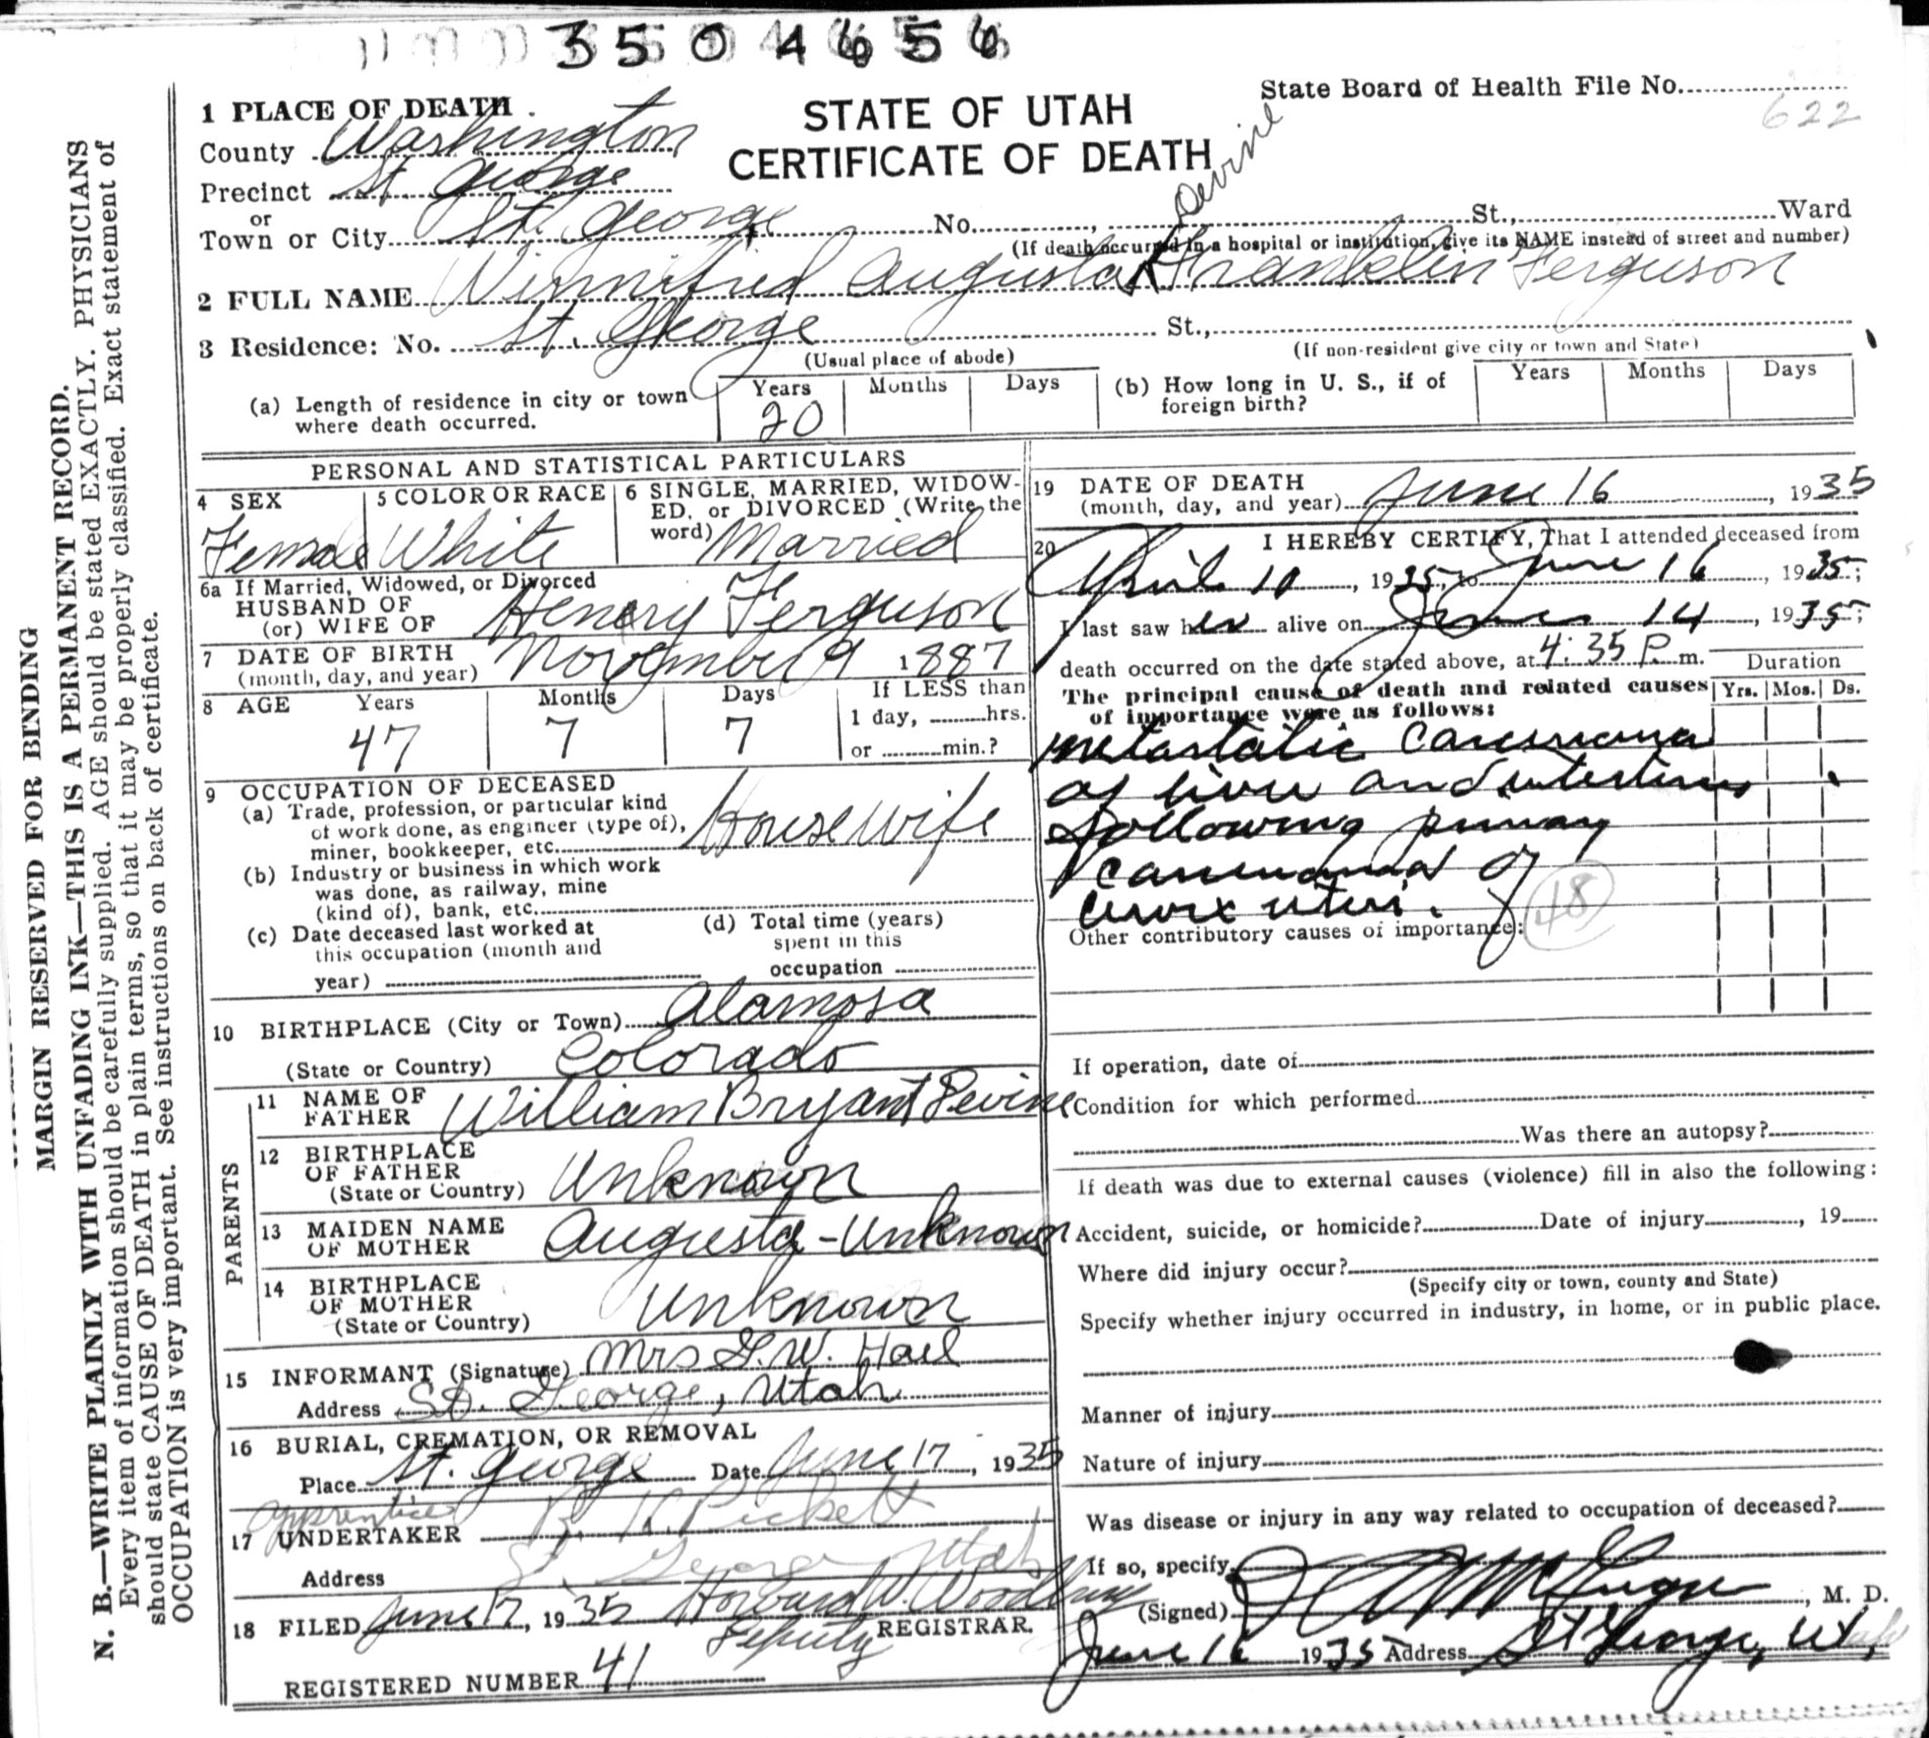 3504656
State Board of Health File No.
622
1 PLACE OF DEATH.
STATE OF UTAH
CERTIFICATE OF DEATH
County Washington
Precinct St. George
or
Town or City St. George No. , St., Ward
(If death occurred in a hospital or institution, give its NAME instead of street and number)
Devine
2 FULL NAME Winnifred Augusta Franklin Ferguson
3 Residence: No. St. George St.,
(Usual place of abode) (If non-resident give city or town and State)
(a) Length of residence in city or town where death occurred. Years 20 Months Days
(b) How long in U. S., if of foreign birth? Years Months Days
PERSONAL AND STATISTICAL PARTICULARS
4 SEX Female
5 COLOR OR RACE White
6 SINGLE, MARRIED, WIDOWED, or DIVORCED (Write the word) Married
6a If Married, Widowed, or Divorced
HUSBAND OF
(or) WIFE OF Henry Ferguson
7 DATE OF BIRTH
(month, day, and year) November 9 1887
8 AGE Years 47 Months 7 Days 7 If LESS than
1 day, hrs.
or min.?
9 OCCUPATION OF DECEASED
(a) Trade, profession, or particular kind
of work done, as engineer (type of),
miner, bookkeeper, etc. Housewife
(b) Industry or business in which work
was done, as railway, mine
(kind of), bank, etc.
(c) Date deceased last worked at
this occupation (month and
year)
(d) Total time (years)
spent in this
occupation
10 BIRTHPLACE (City or Town) Alamosa
(State or Country) Colorado
PARENTS
11 NAME OF
FATHER William Bryant Devine
12 BIRTHPLACE
OF FATHER
(State or Country) Unknown
13 MAIDEN NAME
OF MOTHER Augusta - Unknown
14 BIRTHPLACE
OF MOTHER
(State or Country) Unknown
15 INFORMANT (Signature) Mrs G.W. Hail
Address St. George, Utah
16 BURIAL, CREMATION, OR REMOVAL
Place St. George Date June 17, 1935
apprentice
17 UNDERTAKER R. K. Pickett
Address St George Utah
18 FILED June 17, 1935 Howard W. Woodbury
Deputy REGISTRAR.
REGISTERED NUMBER 41
19 DATE OF DEATH
(month, day, and year) June 16, 1935
20 I HEREBY CERTIFY, That I attended deceased from
April 10, 1935, to June 16, 1935;
I last saw her alive on June 14, 1935;
death occurred on the date stated above, at 4:35 P.m.
Duration
Yrs. Mos. Ds.
The principal cause of death and related causes
of importance were as follows:
metastatic Carcinoma
of liver and intestines
following primary
carcinoma of
cervix uteri.
48
Other contributory causes of importance:
If operation, date of
Condition for which performed
Was there an autopsy?
If death was due to external causes (violence) fill in also the following:
Accident, suicide, or homicide? Date of injury , 19
Where did injury occur?
(Specify city or town, county and State)
Specify whether injury occurred in industry, in home, or in public place.
Manner of injury
Nature of injury
Was disease or injury in any way related to occupation of deceased?
If so, specify
(Signed) , M. D.
June 16 1935 Address St George, Utah
MARGIN RESERVED FOR BINDING
N. B.—WRITE PLAINLY WITH UNFADING INK—THIS IS A PERMANENT RECORD.
Every item of information should be carefully supplied. AGE should be stated EXACTLY. PHYSICIANS
should state CAUSE OF DEATH in plain terms, so that it may be properly classified. Exact statement of
OCCUPATION is very important. See instructions on back of certificate.